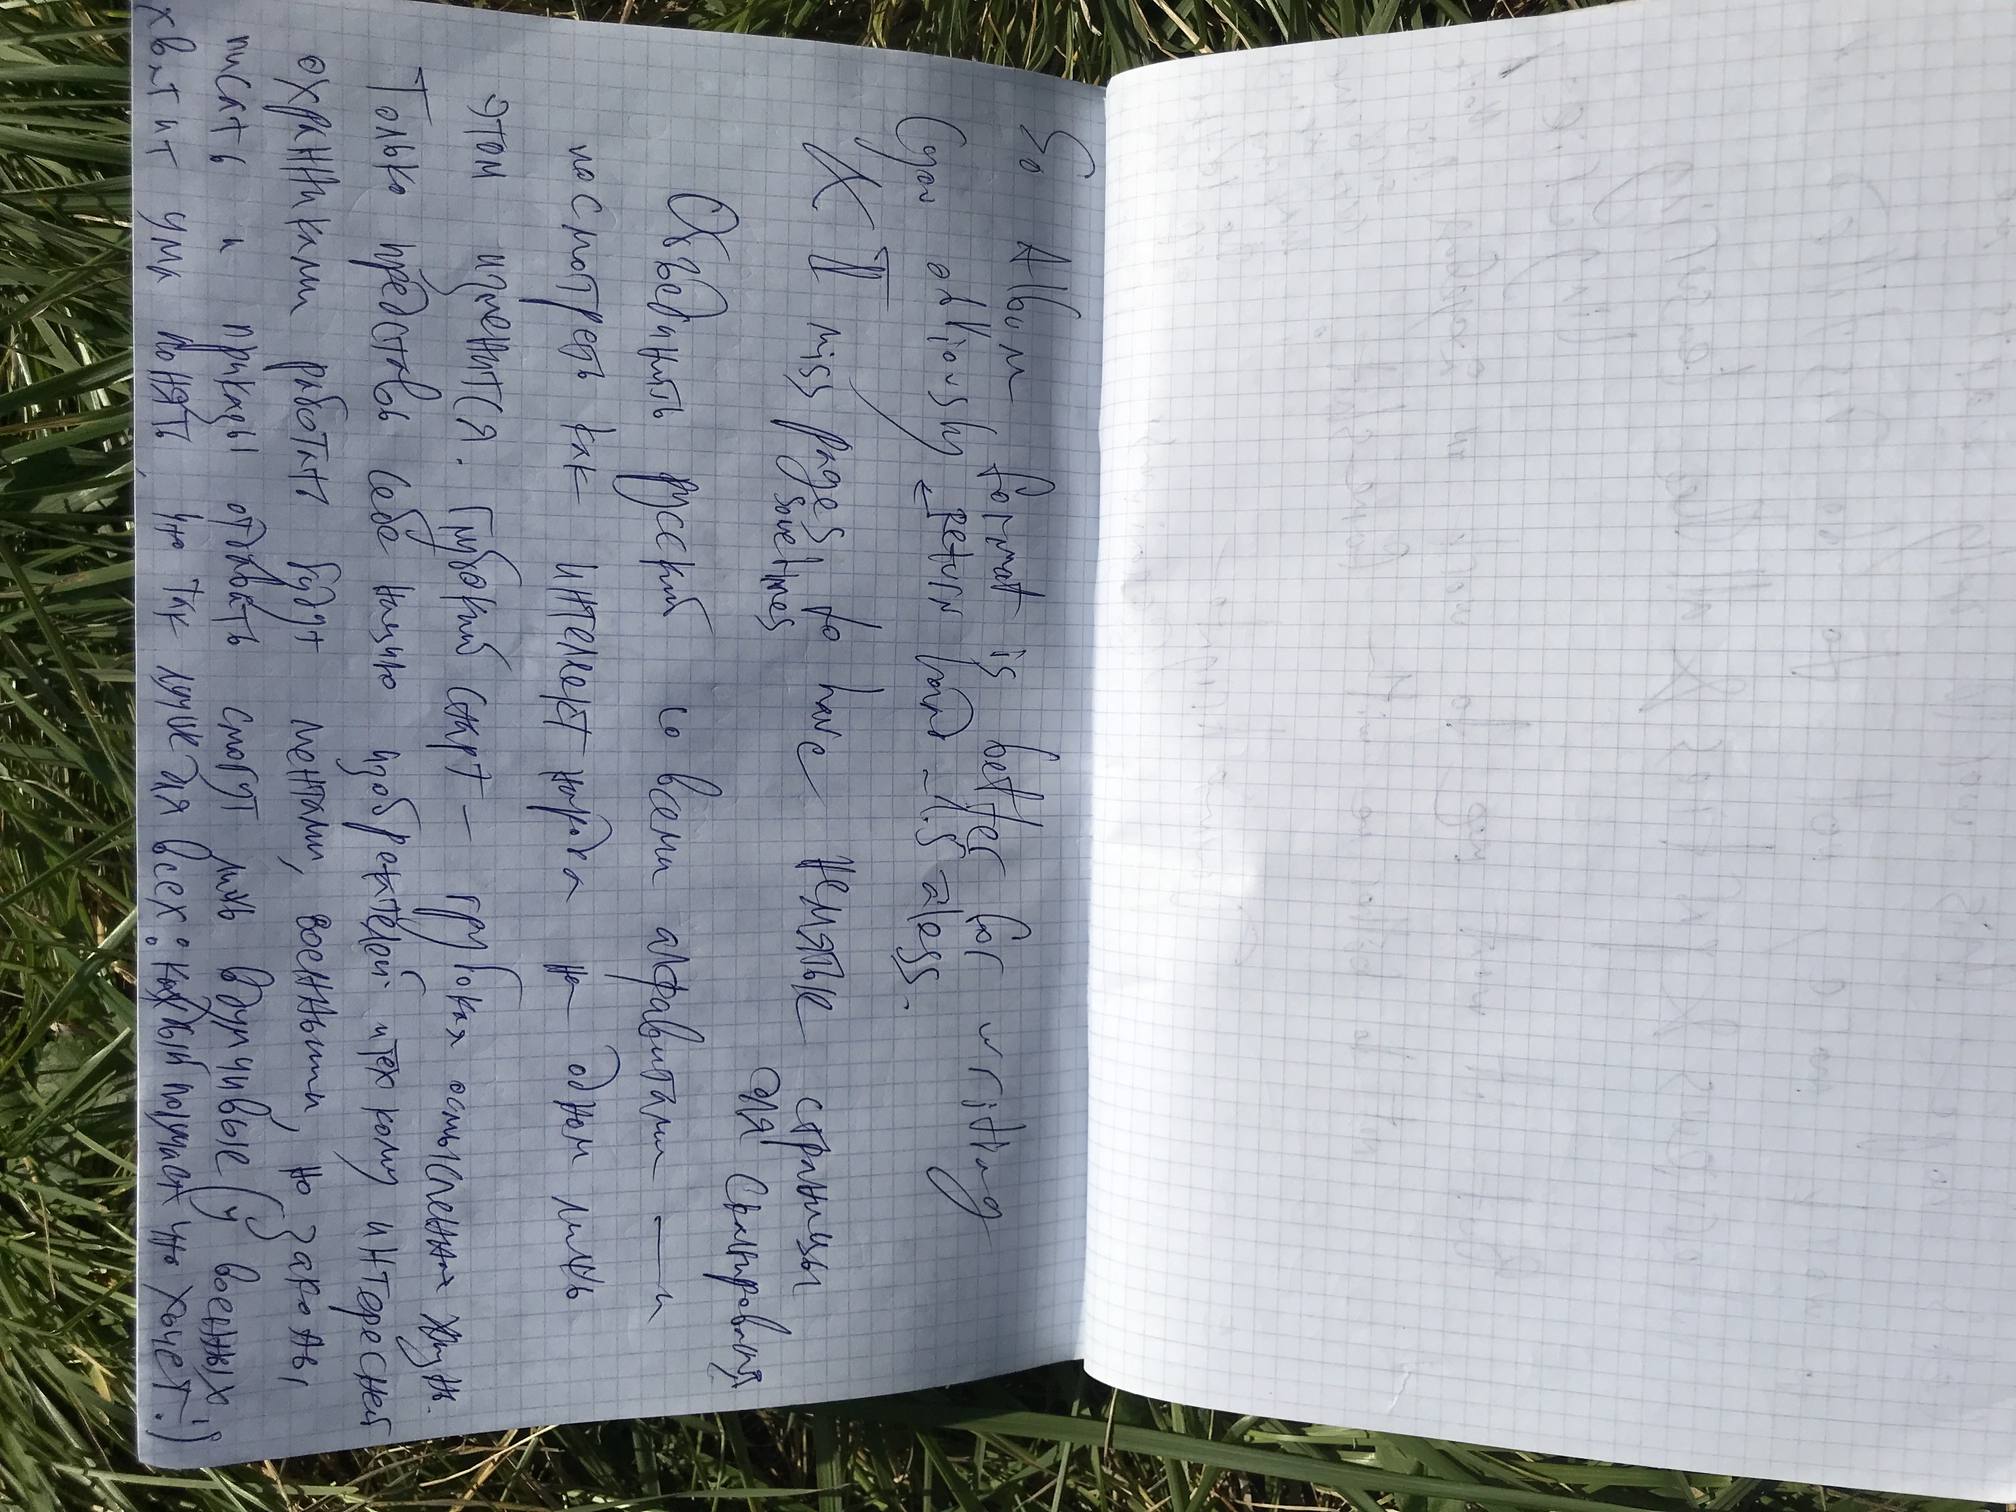 So Album format is better for writing
Cyan obviously ← Return hand ~1.5 a less.
I miss pages to have немятые страницы
sometimes для сканирования
Объединить русский со всеми алфавитами — и
посмотреть как интелект народа на одном лишь
этом изменится. Глубокий старт — глубокая осмысленная жизнь.
Только представь себе нацию изобретателей и тех кому интересней
охранниками работать будут ментами, военными, но законы
писать и приказы отдавать смогут лишь вдумчивые (у военных
хватит ума понять, что так лучше для всех: каждый получает что хочет :)